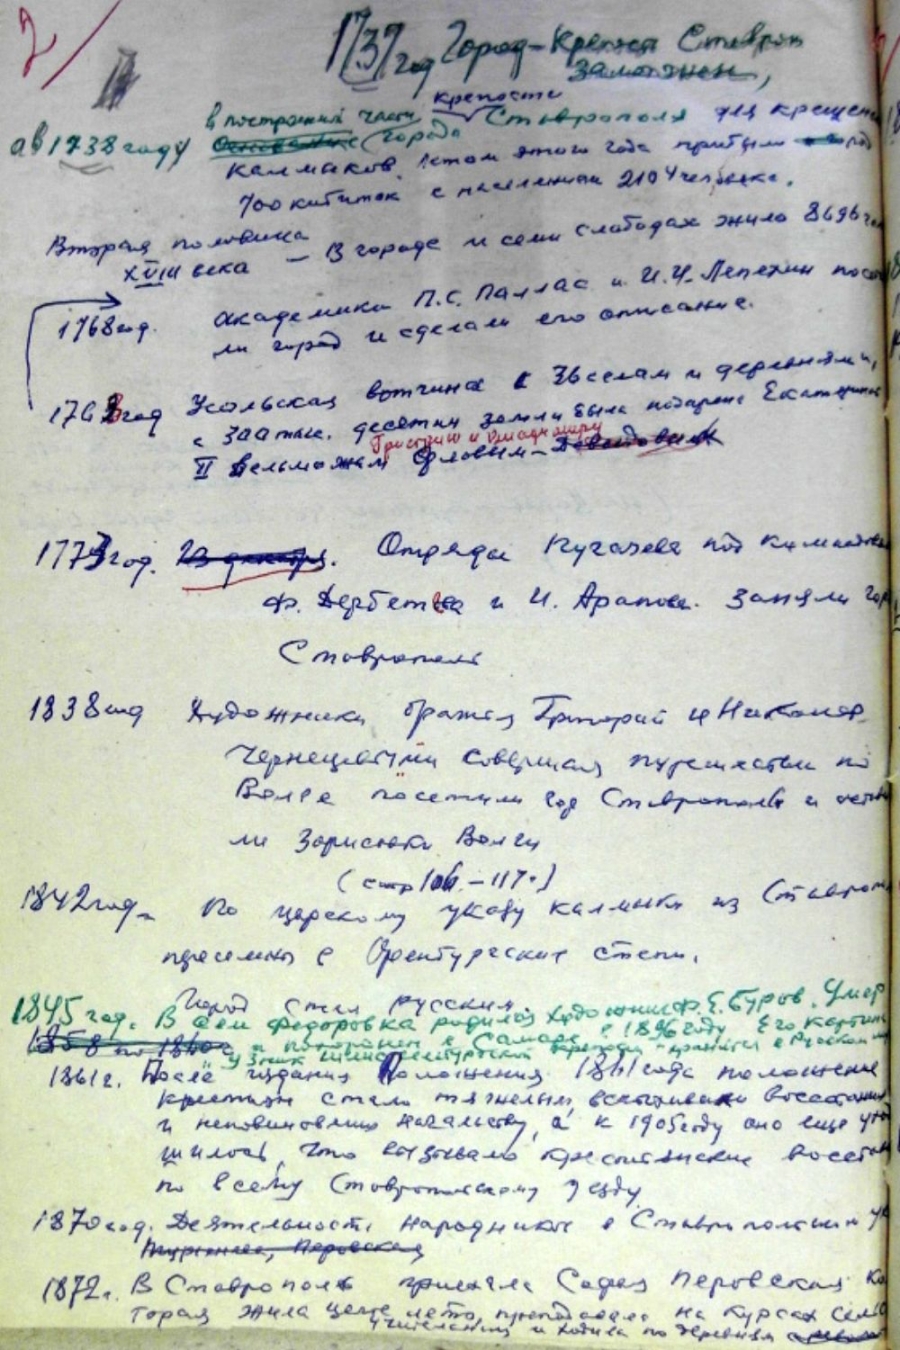 2/
1737 год Город-крепость Ставроп
заложен,
крепости
в построенной части города Ставрополя для крещен
ав 1738 году Основание
калмыков. Летом этого года прибыли
700 кибиток с населением 2104 человека.
Вторая половина
XVIII века – В городе и семи слободах жило 8696 чел
1768 год. академики П.С. Паллас и И.И. Лепехин посе
ли город и сделали его описание.
176 год Усольская вотчина с селам и деревнями,
с 300 тыс. десятин земли была подарена Екатериной
Григорию и Владимиру
II вельможам Орловым – Давыдовым
1773 год. декабря. Отряды Пугачева под командова
Ф. Дербетева и И. Арапова. заняли гор
Ставрополь
1838 год Художники братья Григорий и Николай
Чернецовыми совершая путешествие по
Волге посетили год Ставрополь и остав
ли зарисовки Волги
(стр 106 – 117.)
1842 год – По царскому указу калмыки из Ставропол
переселены в Оренбургские степи.
Город стал русским.
1845 год. В селе Федоровка родился художник Ф.Е. Буров. Умер
и похоронен в Самаре в 1896 году. Его картина
1858 по 1860
хранится в Русском
1861 г. После издания Положения 1861 года положение
крестьян стало тяжелым, вспыхивали восстания
и неповиновения начальству, а к 1905 году оно еще уху
шилось, что вызывало крестьянские восстан
по всему Ставропольскому уезду
1870 год. Деятельность народников в Ставропольском у
Перовская
1872 г. В Ставрополь приехала Софья Перовская ко
торая жила целое лето, преподавала на курсах сель
и ходила по деревням